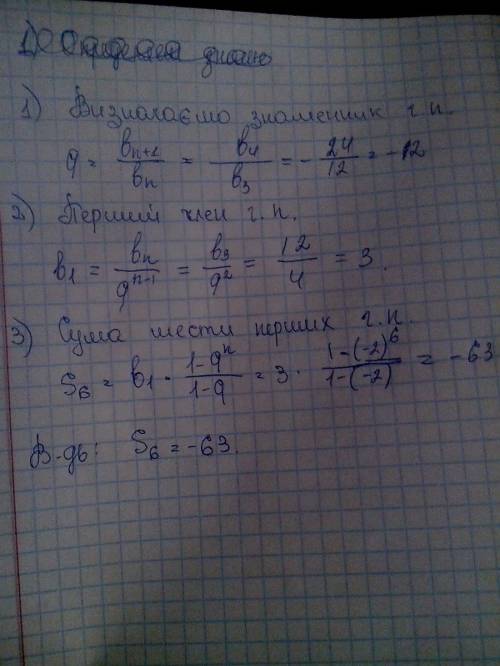 1)
1) Визначаємо знаменник г.п.
q = bn+1/bn = b4/b3 = -24/12 = -12
2) Перший член г.п.
b1 = bn/q^(n-1) = b3/q^2 = 12/4 = 3.
3) Сума шести перших г.п.
S6 = b1 · (1-q^n)/(1-q) = 3 · (1-(-2)^6)/(1-(-2)) = -63
В-дь: S6 = -63.